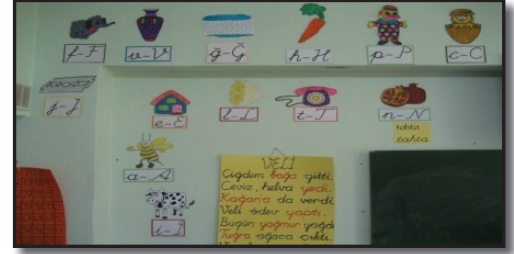 f-F
v-V
ğ-Ğ
h-H
p-P
c-C
j-J
e-E
l-L
t-T
n-N
tohta
tahta
a-A
i-İ
VELİ
Çiğdem bağa gitti.
Ceviz, helva yedi.
Kağan'a da verdi.
Veli ödev yaptı.
Bugün yağmur yağdı
Tuğra ağaca çıktı.